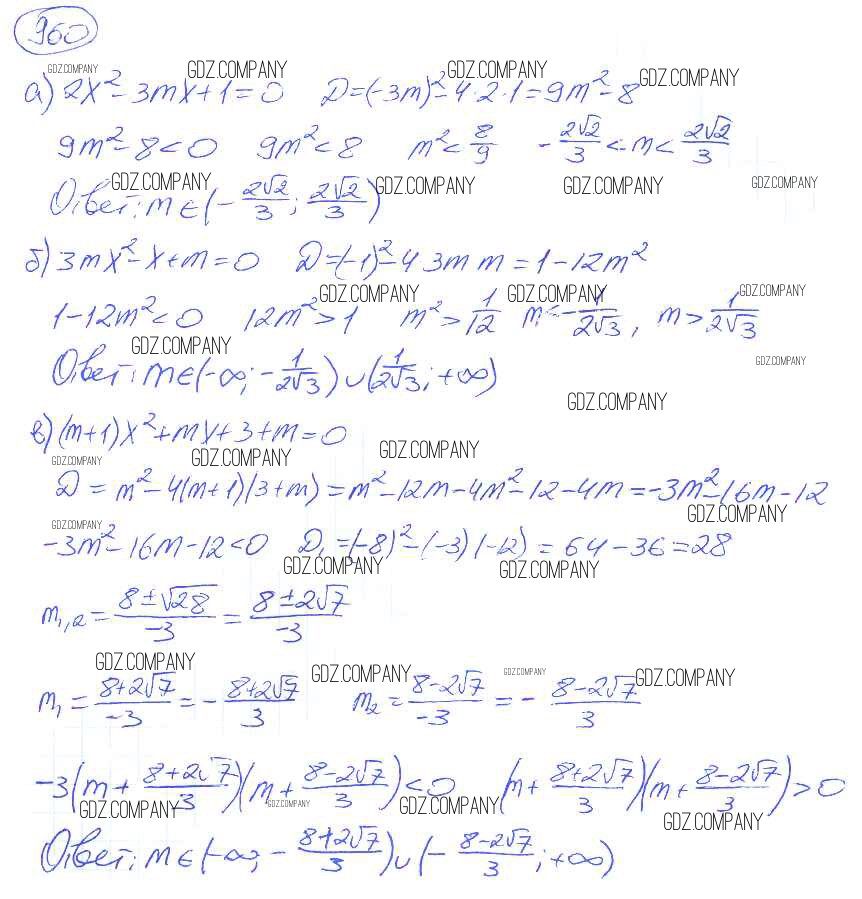 960
GDZ.COMPANY GDZ.COMPANY GDZ.COMPANY GDZ.COMPANY
а) 2x² - 3mx + 1 = 0 D = (-3m)² - 4·2·1 = 9m² - 8
9m² - 8 < 0 9m² < 8 m² < 8/9 -2√2/3 < m < 2√2/3
GDZ.COMPANY GDZ.COMPANY GDZ.COMPANY GDZ.COMPANY
Ответ: m ∈ (-2√2/3; 2√2/3)
б) 3mx² - x + m = 0 D = (-1)² - 4 3m m = 1 - 12m²
GDZ.COMPANY GDZ.COMPANY GDZ.COMPANY
1 - 12m² < 0 12m² > 1 m² > 1/12 m < -1/2√3, m > 1/2√3
GDZ.COMPANY GDZ.COMPANY
Ответ: m ∈ (-∞; -1/2√3) ∪ (1/2√3; +∞)
GDZ.COMPANY
в) (m+1)x² + mx + 3 + m = 0
GDZ.COMPANY GDZ.COMPANY GDZ.COMPANY
D = m² - 4(m+1)(3+m) = m² - 12m - 4m² - 12 - 4m = -3m² - 16m - 12
GDZ.COMPANY GDZ.COMPANY
-3m² - 16m - 12 < 0 D₁ = (-8)² - (-3)(-12) = 64 - 36 = 28
GDZ.COMPANY GDZ.COMPANY
m₁,₂ = 8±√28/-3 = 8±2√7/-3
GDZ.COMPANY GDZ.COMPANY GDZ.COMPANY GDZ.COMPANY
m₁ = 8+2√7/-3 = -8+2√7/3 m₂ = 8-2√7/-3 = -8-2√7/3
-3(m + 8+2√7/3)(m + 8-2√7/3) < 0 (m + 8+2√7/3)(m + 8-2√7/3) > 0
GDZ.COMPANY GDZ.COMPANY GDZ.COMPANY GDZ.COMPANY
Ответ: m ∈ (-∞; -8+2√7/3) ∪ (-8-2√7/3; +∞)